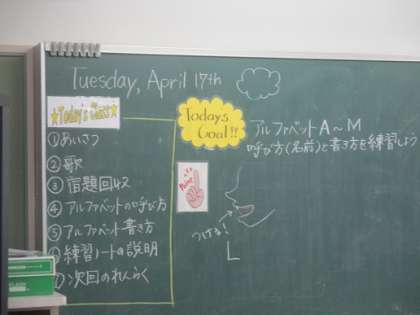 Tuesday, April 17th
Today's Class
①あいさつ
②歌
③宿題回収
④アルファベットの呼び方
⑤アルファベット書き方
練習ノートの説明
次回のれんらく
Today's
Goal!!
アルファベットA～M
呼び方(名前)と書き方を練習しよう
Point
つける!
L